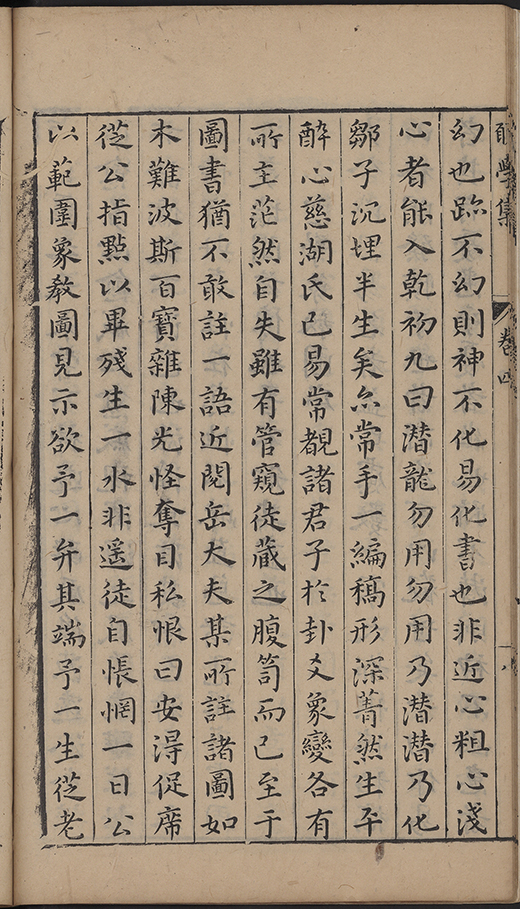 學集
卷四
八
幻也跡不幻則神不化易化書也非近心粗心淺
心者能入乾初九曰潛龍勿用勿用乃潛潛乃化
鄒子沉埋半生矣尒常手一編稿形深菁然生平
醉心慈湖氏已易常覩諸君子於卦爻象變各有
所主茫然自失雖有管窺徒藏之腹笥而已至于
圖書猶不敢註一語近閱岳大夫某所註諸圖如
木難波斯百寶雜陳光怪奪目私恨曰安得促席
從公指點以畢殘生一水非遥徒自悵惘一日公
以範圍象教圖見示欲予一弁其端予一生從老